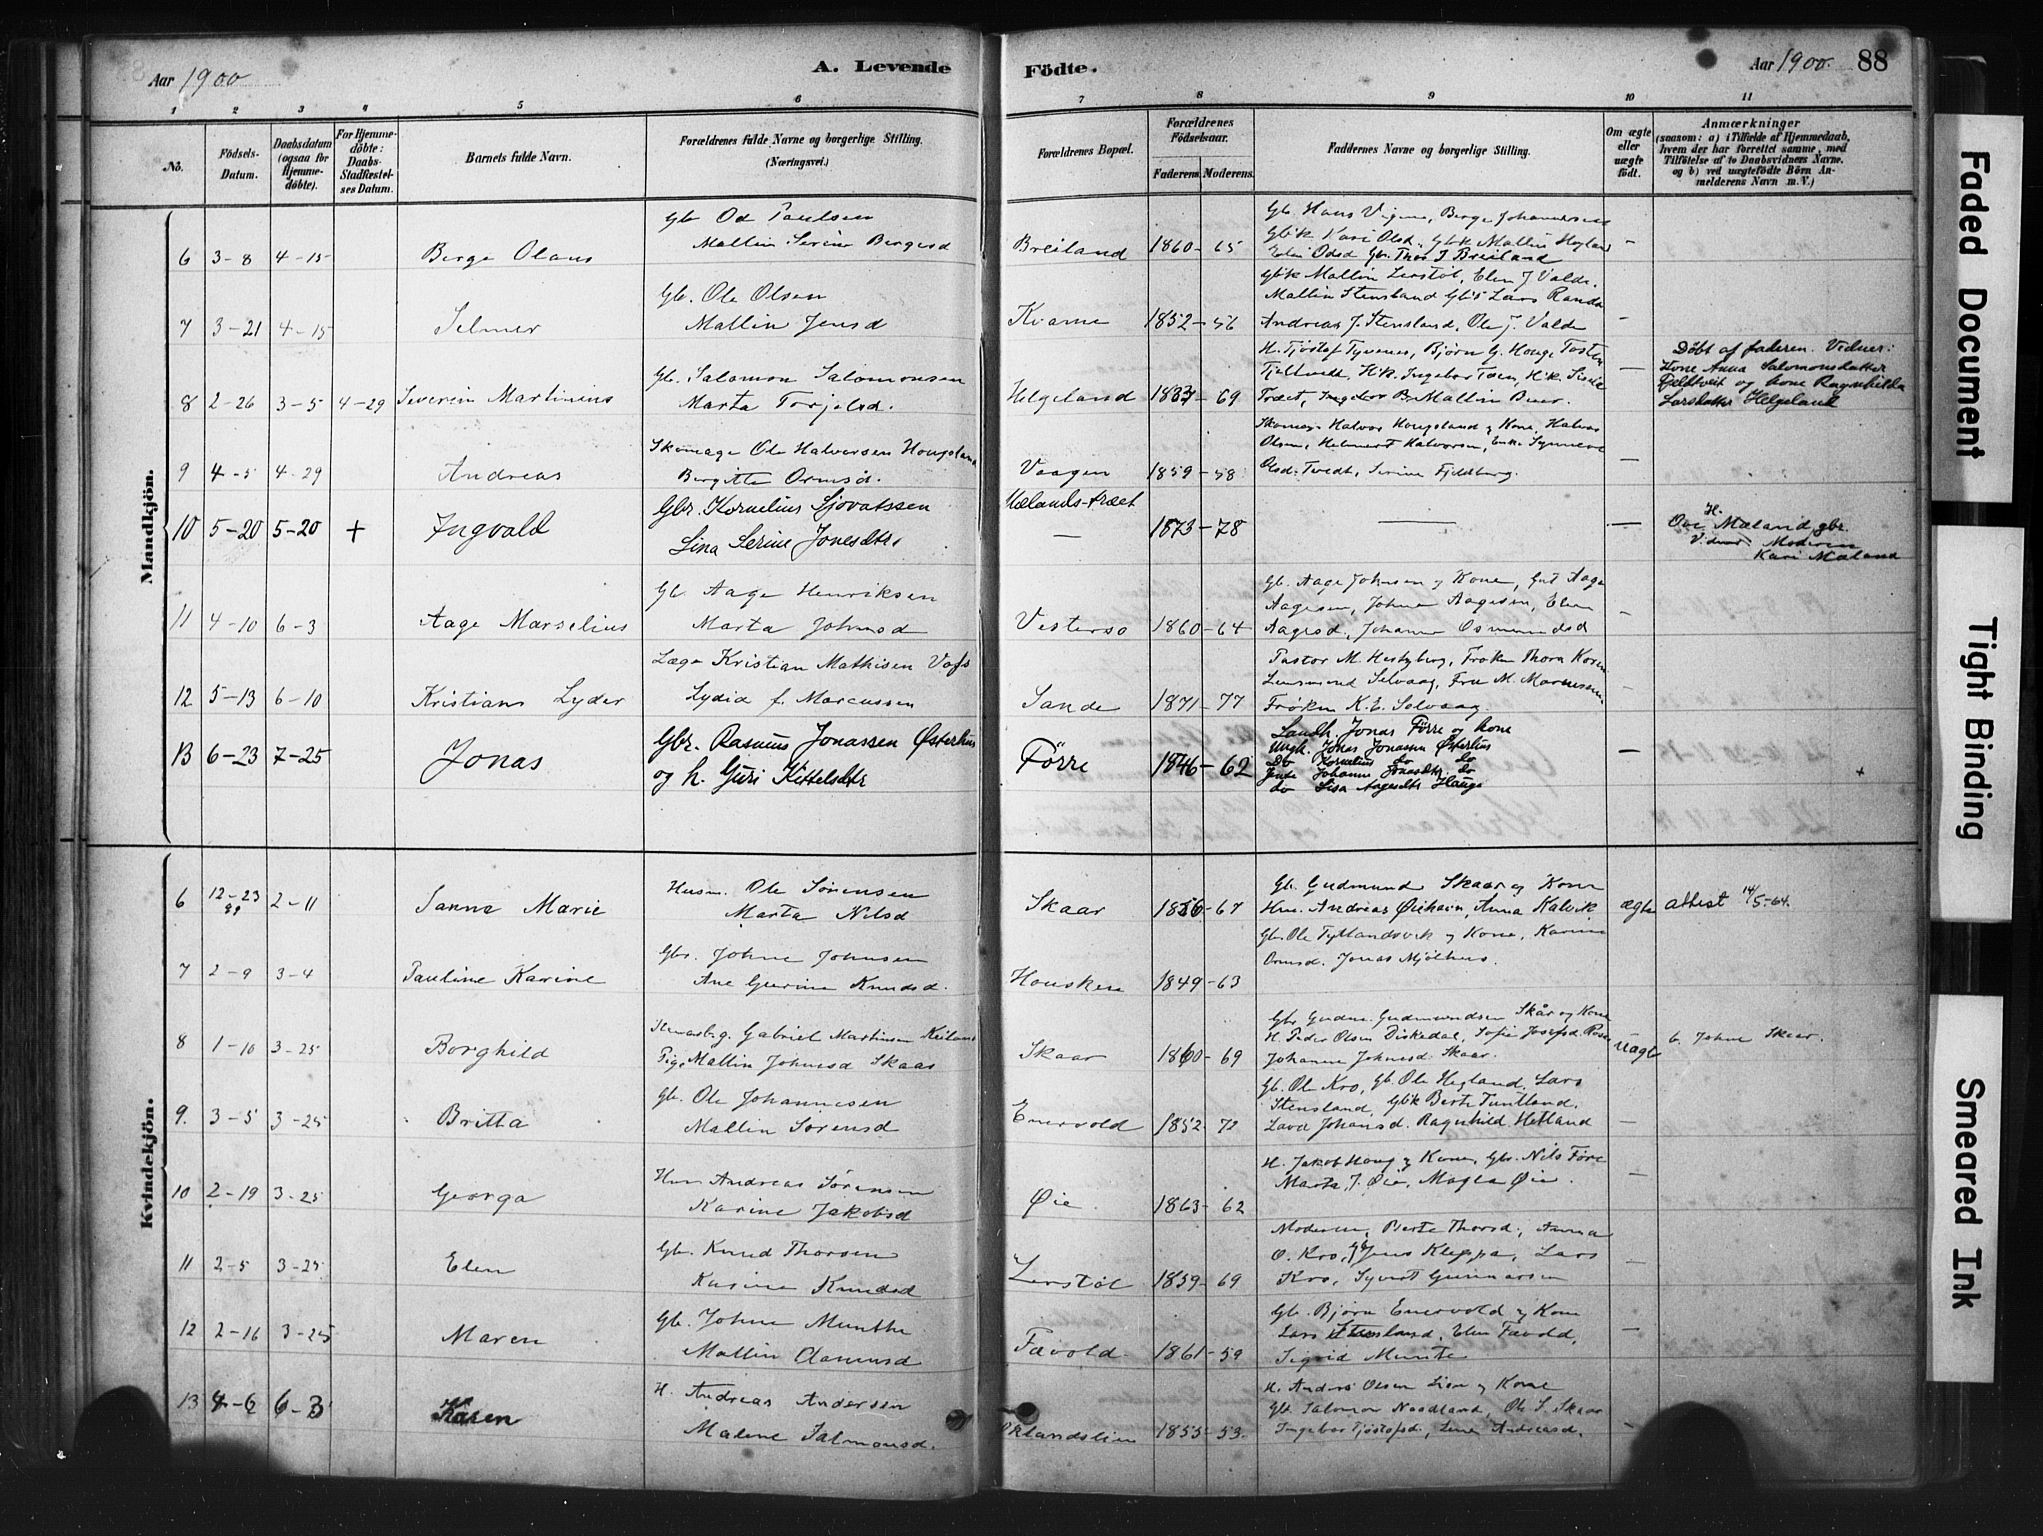 Aar 1900
A. Levende
Födte.
Aar 1900. 88
1 2 3 4 5 6 7 8 9 10 11
No.
Födsels-Datum.
Daabsdatum (ogsaa for Hjemme-döbte).
For Hjemme-döbte: Daabs-Stadfæstelses Datum.
Barnets fulde Navn.
Forældrenes fulde Navne og borgerlige Stilling. (Næringsvei.)
Forældrenes Bopæl.
Forældrenes Födselsaar.
Faderens. Moderens.
Faddernes Navne og borgerlige Stilling.
Om ægte eller uægte födt.
Anmærkninger
(saasom: a) i Tilfælde af Hjemmedaab, hvem der har forrettet samme, med Tilföielse af to Daabsvidners Navne, og b) ved uægtefödte Börn Anmelderens Navn m. V.)
Mandkjön.
6 3-8 4-15 Berge Olaus
Gb. Od Paulsen
Mallin Serine Bergesd
Breiland 1860-65
Gb. Hans Vigene, Berge Johannesen
Gbk Kari Olsd. Gbk Mallin Høyland
Elen Odsd Gb. Thor J Breiland
7 3-21 4-15 Selmer
Gb. Ole Olsen
Mallin Jensd
Kvame 1852-56
Gbk Mallin Lerstøl, Elen J Valde.
Mallin Stensland Gbs Lars Randa
Andreas J. Stensland, Ole J. Valde
8 2-26 3-5 4-29 Severin Martinius
Gb. Salomon Salomonsen
Marta Torjelsd.
Helgeland 1837-69
H. Tjöstof Tysvenes, Bjørn G. Houge Tosten
Træet, Mallin Buer.
Döbt af faderen. Vidner:
Kone Anna Salomonsdatter
Fjeldtveit og kone Ragnhilda
Larsdatter Helgeland
9 4-5 4-29 Andreas
Skomage Ole Halvorsen Hougsland
Bergitte Ormsd.
Vaagen 1859-58
Skomag. Halvor Hougsland og Kone, Halvor
Olsen, Helmert Halvorsen, Enke Synneve
Olsd. Tvedt, Serine Fjeldberg.
10 5-20 5-20 + Ingvald
Gbr. Kornelius Sjovatssen
Lina Serine Jonesdtr.
Mælands-træet
1873-78
H.
Ove Mæland gbr.
Vidner Moderen
Kari Mæland
11 4-10 6-3 Aage Marselius
Gb. Aage Henriksen
Marta Johnsd
Vestersø 1860-64
Gb. Aage Johnsen og Kone, Gut Aage
Aagesen, Johne Aagesen, Elen
Aagesd, Johanne Osmundsd
12 5-13 6-10 Kristians Lyder
Læge Kristian Mathisen Vafs
Lydia f. Marcussen
Sande 1871-77
Pastor M. Hertzberg, Frøken Thora Koren
Lensmand Selvaag, Fru M. Marcussen
Frøken K. E. Selvaag.
13 6-23 7-25 Jonas
Gbr. Rasmus Jonassen Østerhus
og h. Guri Kittelsdtr
Førre 1846-62
Landh. Jonas Førre og kone
Ungk. Jonas Jonassen Østerhus
Do Kornelius do do
Jente Johanne Jonasdtr do
do Lisa Aagesdtr Hauge
Kvindekjön.
6 12-23 99 2-11 Sanna Marie
Husm. Ole Sørensen
Marta Nilsd
Skaar 1856-67
Gb. Gudmund Skaar og Kone
Hm. Andreas Øiehavn, Anna Kalvik
ægte attest 14/5-64.
7 2-9 3-4 Pauline Karine
Gbr. Johne Johnsen
Ane Gurine Knudsd.
Housken 1849-63
Gb. Ole Tytlandsvik og Kone, Karine
Ormsd. Jonas Mjølhus.
8 1-10 3-25 Borghild
Gabriel Martinsen
Pige Mallin Johnesd Skaar
Skaar 1860-69
Gbr Gudm. Gudmundsen Skår og Kone
H. Peder Olsen Diskedal, Sofie Josefsd.
Johanne Johnesd. Skaar.
uægte
G. Johne Skaar.
9. 3-5 3-25 Britta
Gb. Ole Johannesen
Mallin Sørensd
Enervold 1852-72
Gb. Ole Kro, Gb. Ole Hegland, Lars
Stensland, Gbk Berte Tuntland.
Lava Johansd. Ragnhild Hetland
10 2-19 3-25 Georga
Hm Andreas Sørensen
Karine Jakobsd
Øie 1863-62
H. Jakob Houg og Kone, Gbr. Nils Føre
Marta J. Øie, Magla Øie.
11 2-5 3-25 Elen
Gb. Knud Thorsen
Karine Knudsd
Lerstøl 1859-69
Moderen, Berte Thorsd, Anna
O. Kro, Gb Jens Kleppa, Lars
Kro, Syvert Gunnarsen
12 2-16 3-25 Maren
Gb. Johne Munthe
Mallin Aamunsd
Fævold 1861-59
Gb. Bjørn Enervold og Kone
Lars Stensland, Elen Fævold,
Sigrid Munte
13 4-6 6-3 Karen
H. Andreas Andersen
Malene Salmonsd.
Øklandslien 1855-53.
H. Anders Olsen Lien og Kone
Gb. Salomon Nordland, Ole S. Skaar
Ingebor Tjöstofsd., Lene Andreasd.
Faded Document
Tight Binding
Smeared Ink